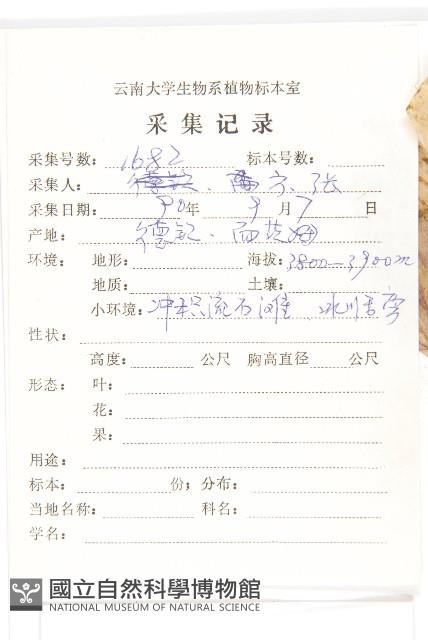 云南大学生物系植物标本室
采集记录
采集号数： 1682 标本号数：
采集人： 、方、张
采集日期： 90年 9月 7日
产地： 德钦、
环境： 地形： 海拔： 3800—3900m
地质： 土壤：
小环境： 冲积流石滩 冰川
性状：
高度： 公尺 胸高直径 公尺
形态： 叶：
花：
果：
用途：
标本： 份； 分布：
当地名称： 科名：
学名：
國立自然科學博物館
NATIONAL MUSEUM OF NATURAL SCIENCE